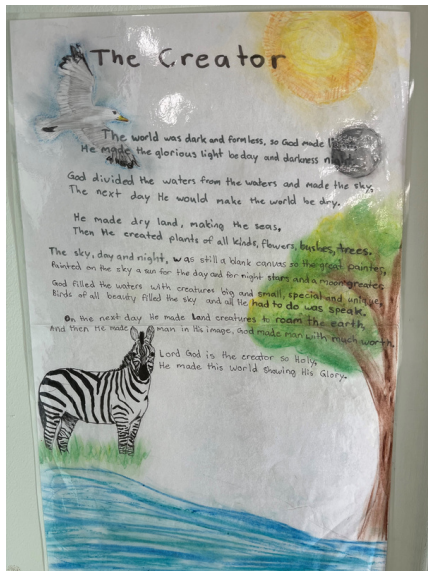 The Creator
The world was dark and formless, so God made
He made the glorious light be day and darkness night.
God divided the waters from the waters and made the sky,
The next day He would make the world be dry.
He made dry land, making the seas,
Then He created plants of all kinds, flowers, bushes, trees.
The sky, day and night, was still a blank canvas so the great painter,
Painted on the sky a sun for the day and for night stars and a moon greater.
God filled the waters with creatures big and small, special and unique,
Birds of all beauty filled the sky and all He had to do was speak.
On the next day He made land creatures to roam the earth,
And then He made man in His image, God made man with much worth.
Lord God is the creator so Holy,
He made this world showing His Glory.